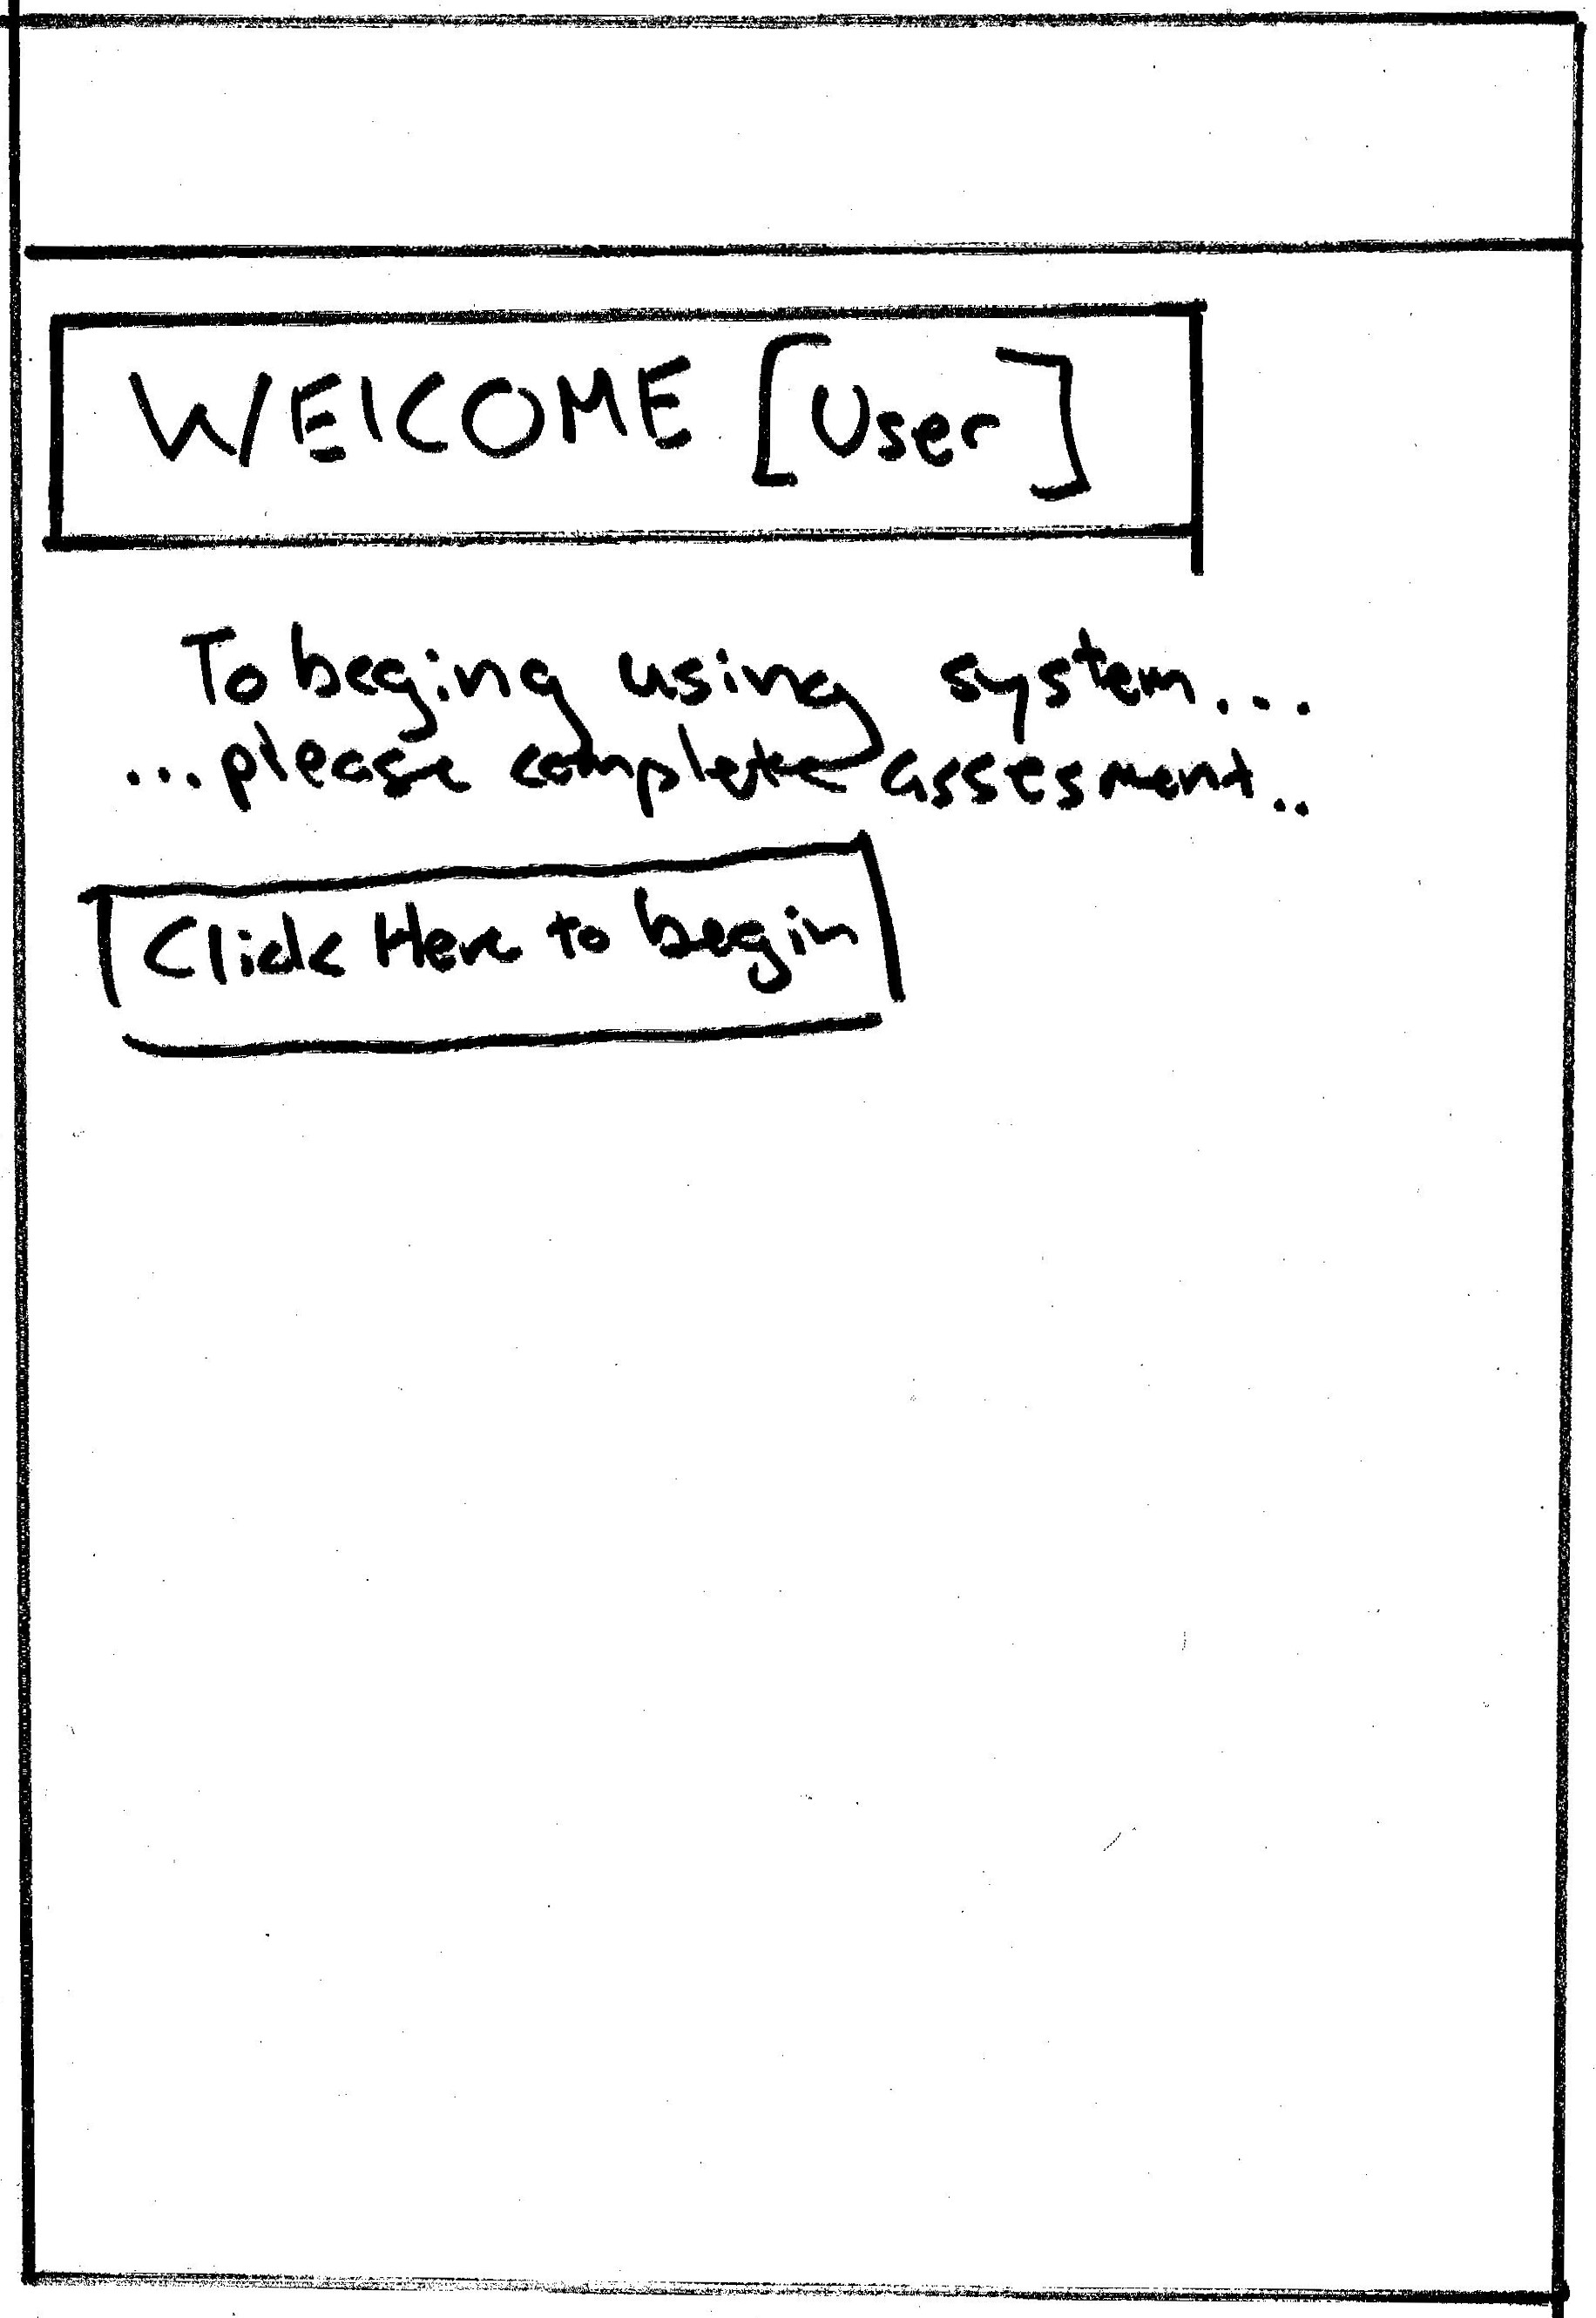 WElCOME [User]
To beging using system...
...please complete assesment..
Click Here to begin